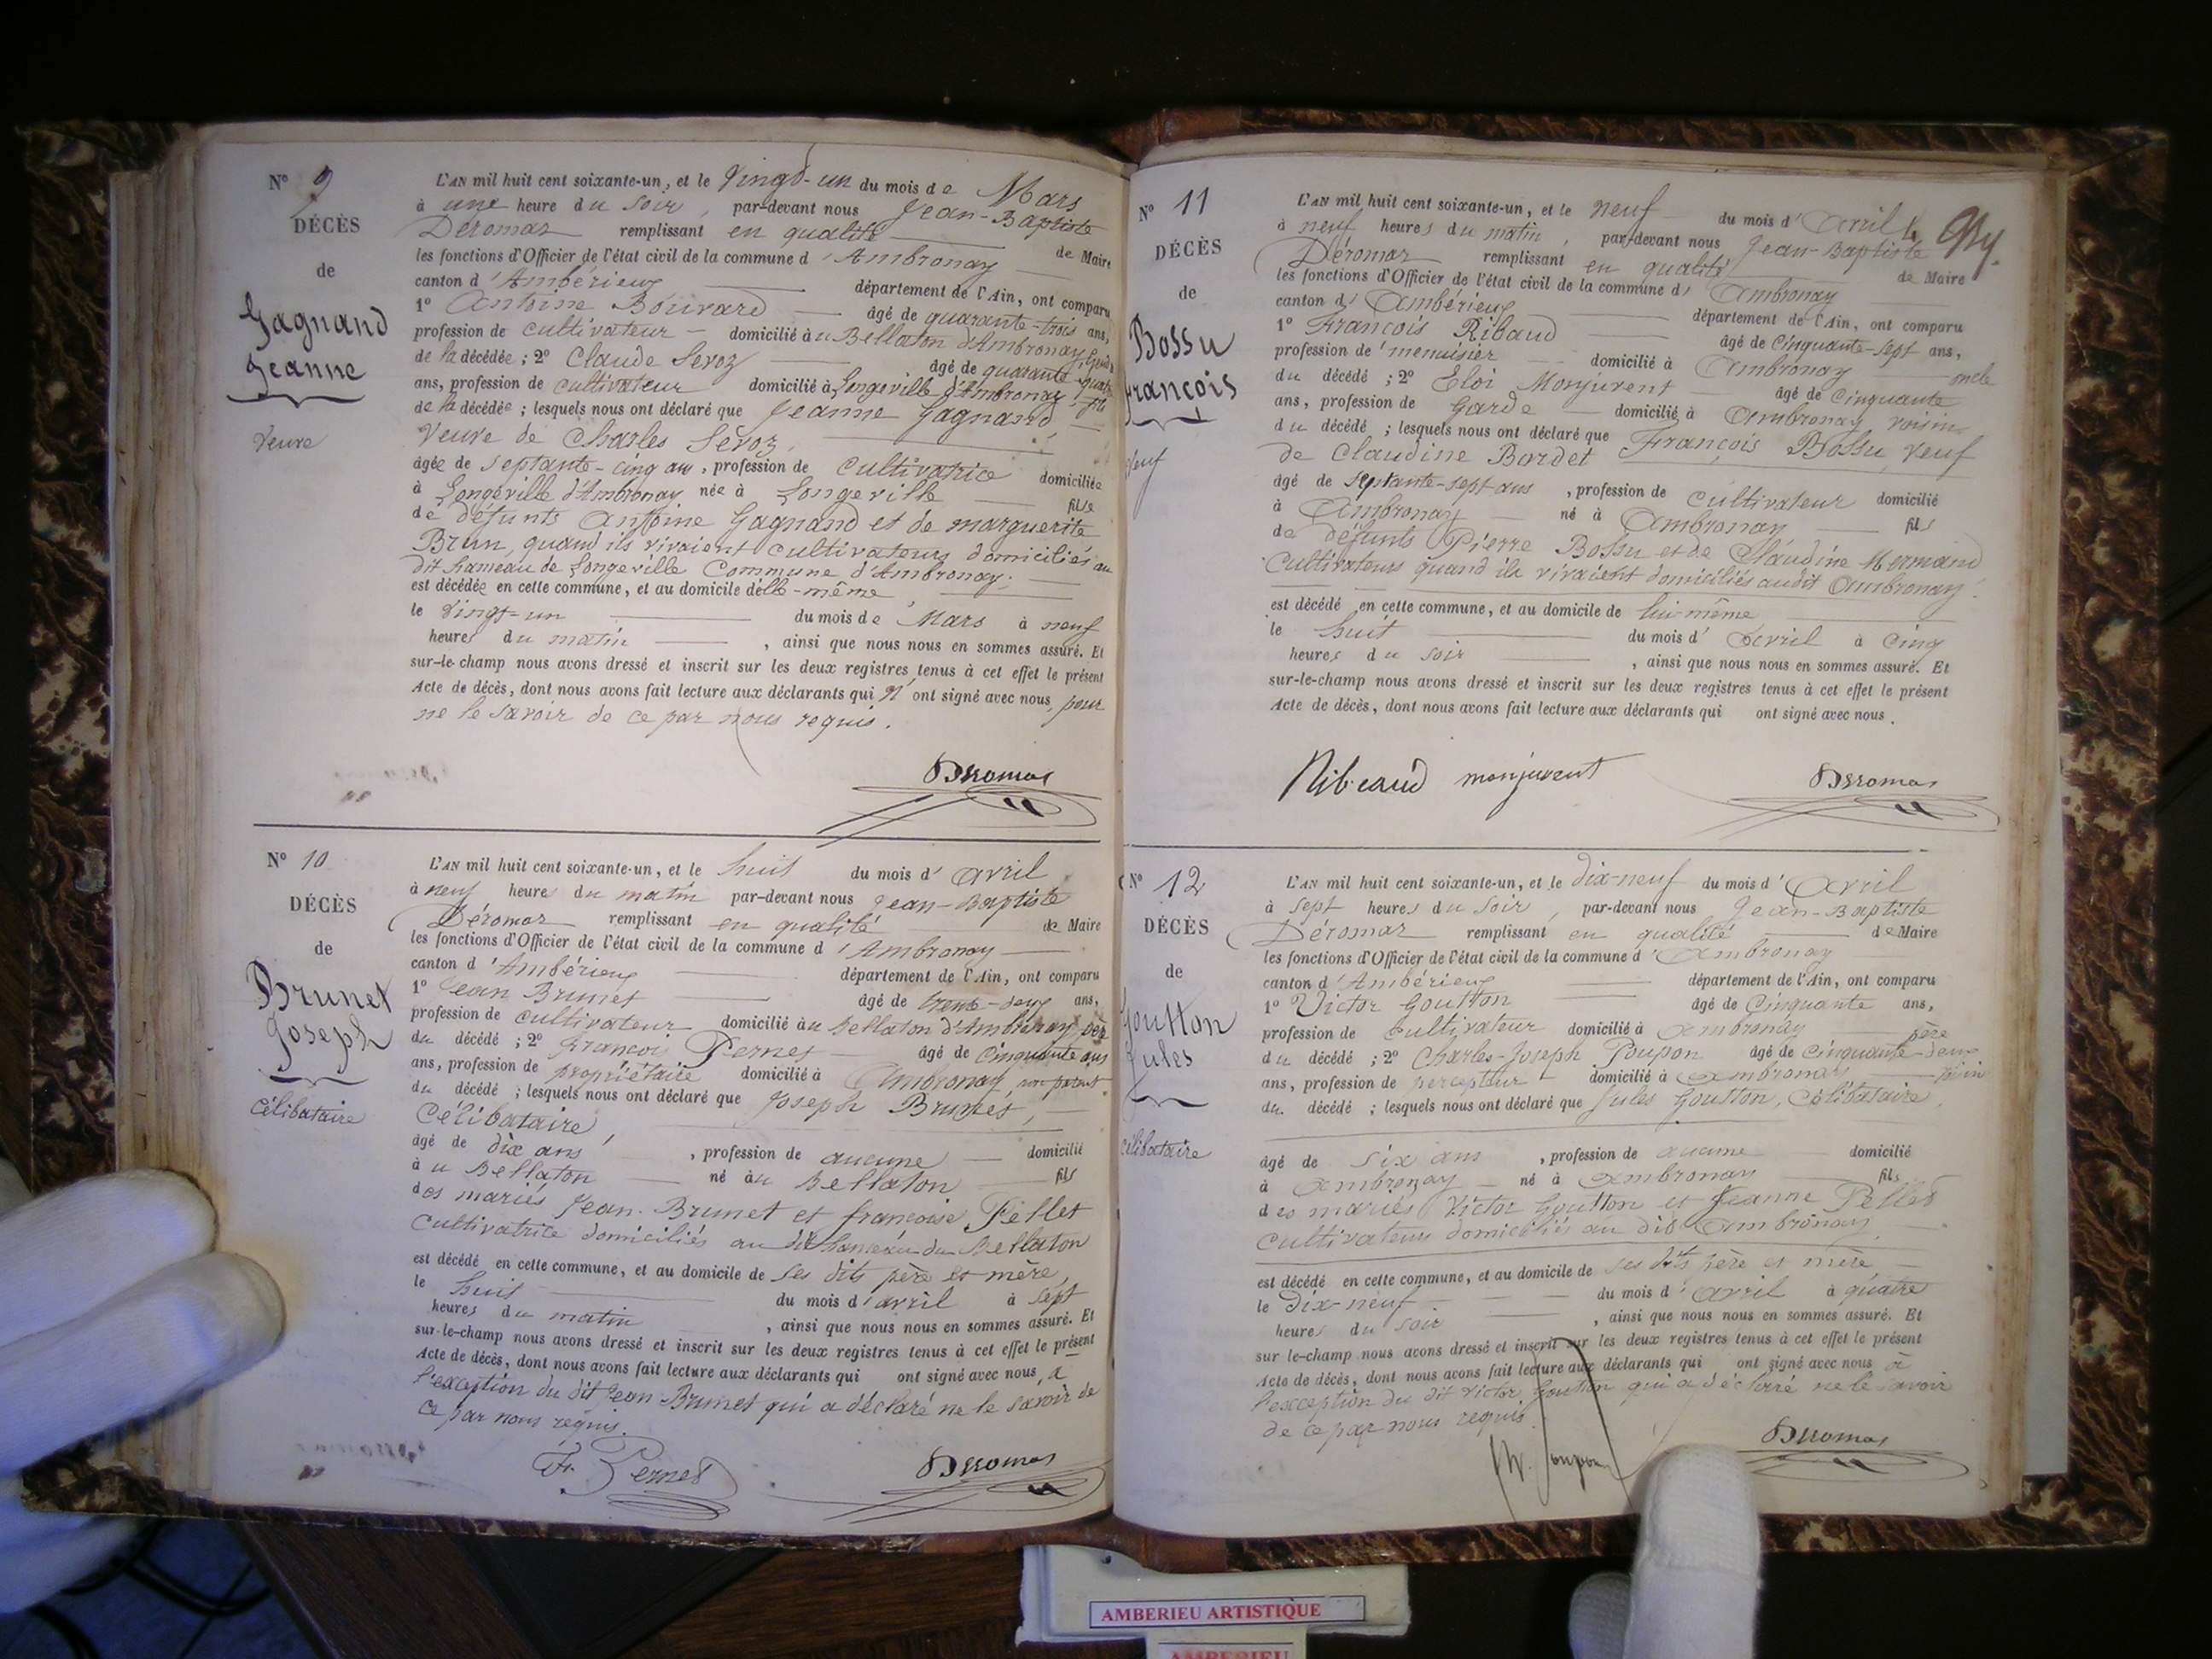 N° 9
DÉCÈS
de
Gagnand
Jeanne
Veuve
L'AN mil huit cent soixante-un, et le Vingt-un du mois de Mars
à une heure du soir, par-devant nous Jean-Baptiste
Déromas remplissant en qualité de Maire
les fonctions d'Officier de l'état civil de la commune d'Ambronay
canton d'Ambérieux département de l'Ain, ont comparu
1° Antoine Bouvard âgé de quarante-trois ans,
profession de cultivateur domicilié au Bellaton d'Ambronay,
de la décédée ; 2° Claude Sevoz âgé de quarante-quatre
ans, profession de cultivateur domicilié à Longeville d'Ambronay fils
de la décédée ; lesquels nous ont déclaré que Jeanne Gagnand
Veuve de Charles Sévoz,
âgée de septante-cinq ans, profession de cultivatrice domiciliée
à Longeville d'Ambronay née à Longeville fille
de défunts Antoine Gagnand et de marguerite
Brun, quand ils vivaient cultivateurs domiciliés au
dit hameau de Longeville Commune d'Ambronay.
est décédée en cette commune, et au domicile d'elle-même
le vingt-un du mois de Mars à neuf
heures du matin, ainsi que nous nous en sommes assuré. Et
sur-le-champ nous avons dressé et inscrit sur les deux registres tenus à cet effet le présent
Acte de décès, dont nous avons fait lecture aux déclarants qui n'ont signé avec nous, pour
ne le savoir de ce par nous requis.
Deromas
N° 10
DÉCÈS
de
Brunet
Joseph
Célibataire
L'AN mil huit cent soixante-un, et le huit du mois d'avril
à neuf heures du matin par-devant nous Jean-Baptiste
Déromas remplissant en qualité de Maire
les fonctions d'Officier de l'état civil de la commune d'Ambronay
canton d'Ambérieux département de l'Ain, ont comparu
1° Jean Brunet âgé de trente-sept ans,
profession de cultivateur domicilié au Bellaton d'Ambronay, père
du décédé ; 2° François Pernet âgé de cinquante ans
ans, profession de propriétaire domicilié à Ambronay non parent
du décédé ; lesquels nous ont déclaré que Joseph Brunet,
Célibataire,
âgé de dix ans, profession de aucune domicilié
au Bellaton né au Bellaton fils
des mariés Jean Brunet et françoise Pellet
Cultivatrice domiciliés au dit hameau du Bellaton
est décédé en cette commune, et au domicile de ses dits père et mère,
le huit du mois d'avril à sept
heures du matin, ainsi que nous nous en sommes assuré. Et
sur-le-champ nous avons dressé et inscrit sur les deux registres tenus à cet effet le présent
Acte de décès, dont nous avons fait lecture aux déclarants qui ont signé avec nous, à
l'exception du dit Jean Brunet qui a déclaré ne le savoir de
ce par nous requis.
Fr. Pernet Deromas
N° 11
DÉCÈS
de
Bossu
François
Veuf
L'AN mil huit cent soixante-un, et le neuf du mois d'Avril
à neuf heures du matin, par-devant nous Jean-Baptiste
Déromas remplissant en qualité de Maire
les fonctions d'Officier de l'état civil de la commune d'Ambronay
canton d'Ambérieux département de l'Ain, ont comparu
1° François Ribaud âgé de cinquante-sept ans,
profession de menuisier domicilié à Ambronay oncle
du décédé ; 2° Eloi Monjuvent âgé de cinquante
ans, profession de Garde domicilié à Ambronay voisin
du décédé ; lesquels nous ont déclaré que François Bossu, veuf
de Claudine Bardet
âgé de septante-sept ans, profession de cultivateur domicilié
à Ambronay né à Ambronay fils
de défunts Pierre Bossu et de Claudine Mermand
Cultivateurs quand ils vivaient domiciliés audit Ambronay.
est décédé en cette commune, et au domicile de lui-même
le huit du mois d'Avril à cinq
heures du soir, ainsi que nous nous en sommes assuré. Et
sur-le-champ nous avons dressé et inscrit sur les deux registres tenus à cet effet le présent
Acte de décès, dont nous avons fait lecture aux déclarants qui ont signé avec nous.
Ribeaud monjuvent Deromas
N° 12
DÉCÈS
de
Goutton
Jules
célibataire
L'AN mil huit cent soixante-un, et le dix-neuf du mois d'Avril
à sept heures du soir, par-devant nous Jean-Baptiste
Déromas remplissant en qualité de Maire
les fonctions d'Officier de l'état civil de la commune d'Ambronay
canton d'Ambérieux département de l'Ain, ont comparu
1° Victor Goutton âgé de cinquante ans,
profession de cultivateur domicilié à Ambronay père
du décédé ; 2° Charles-Joseph Poupon âgé de cinquante-deux
ans, profession de percepteur domicilié à Ambronay voisin
du décédé ; lesquels nous ont déclaré que Jules Goutton, Célibataire,
âgé de six ans, profession de aucune domicilié
à Ambronay né à Ambronay fils
des mariés Victor Goutton et Jeanne Pellet
cultivateurs domiciliés au dit Ambronay
est décédé en cette commune, et au domicile de ses dits père et mère
le dix-neuf du mois d'avril à quatre
heures du soir, ainsi que nous nous en sommes assuré. Et
sur-le-champ nous avons dressé et inscrit sur les deux registres tenus à cet effet le présent
Acte de décès, dont nous avons fait lecture aux déclarants qui ont signé avec nous à
l'exception du dit Victor Goutton qui a déclaré ne le savoir
de ce par nous requis.
Poupon Deromas
AMBERIEU ARTISTIQUE
AMBERIEU